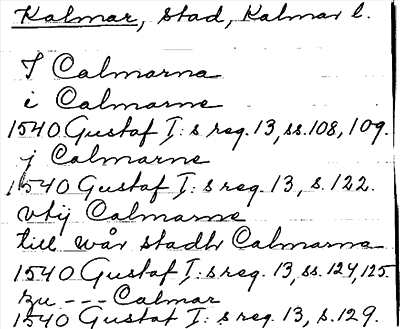 Kalmar, stad, Kalmar l.
I Calmarna
i Calmarne
1540 Gustaf I:s reg. 13, ss. 108, 109.
j Calmarne
1540 Gustaf I:s reg. 13, s. 122.
vtij Calmarne
till wår stadh Calmarne
1540 Gustaf I:s reg. 13, ss. 124, 125.
zu --- Calmar
1540 Gustaf I:s reg. 13, s. 129.